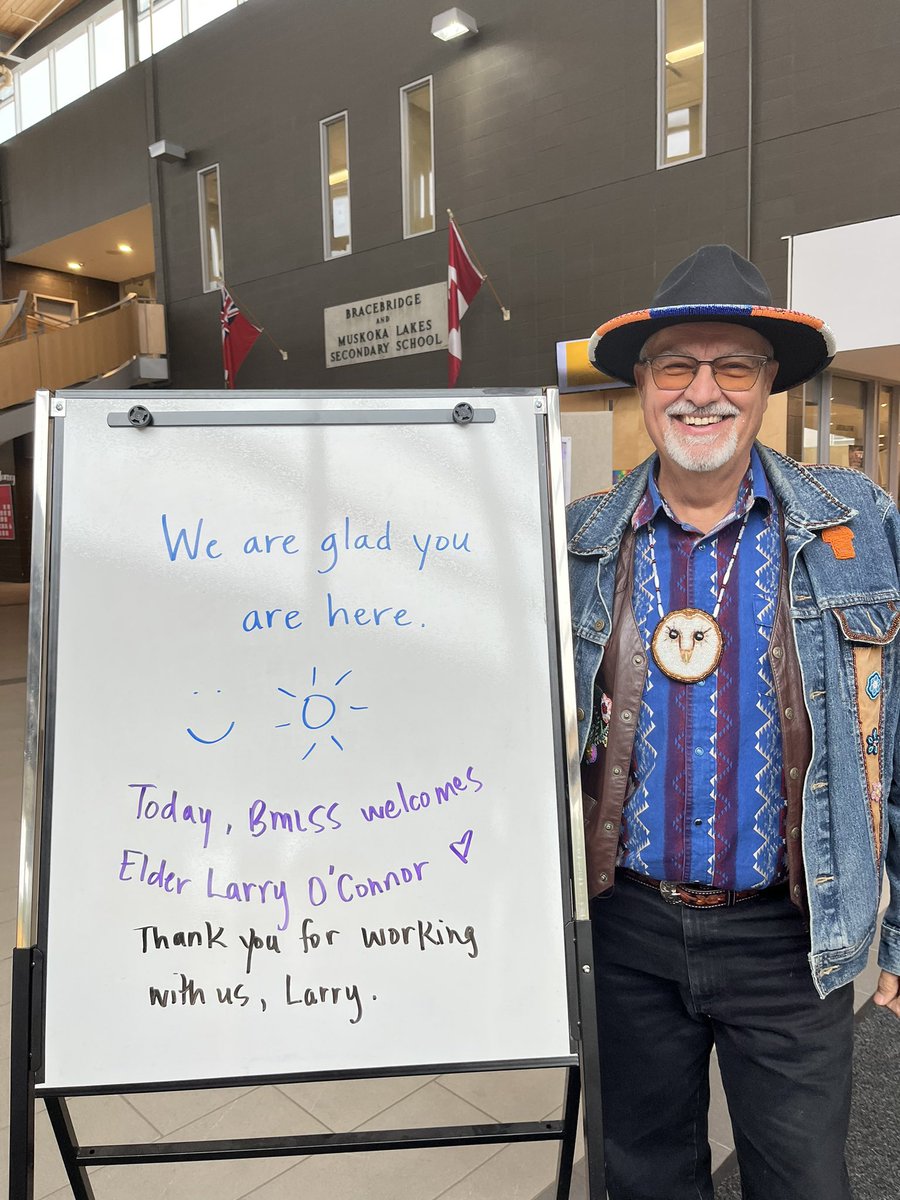 BRACEBRIDGE
AND
MUSKOKA LAKES
SECONDARY SCHOOL
We are glad you
are here.
Today, BMLSS welcomes
Elder Larry O'Connor
Thank you for working
with us, Larry.